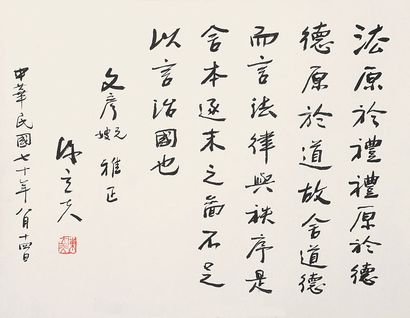 法原於禮禮原於德
德原於道故舍道德
而言法律與秩序是
舍本逐末之圖不足
以言治國也
文彥兄嫂雅正
陳立夫
中華民國七十年八月十四日